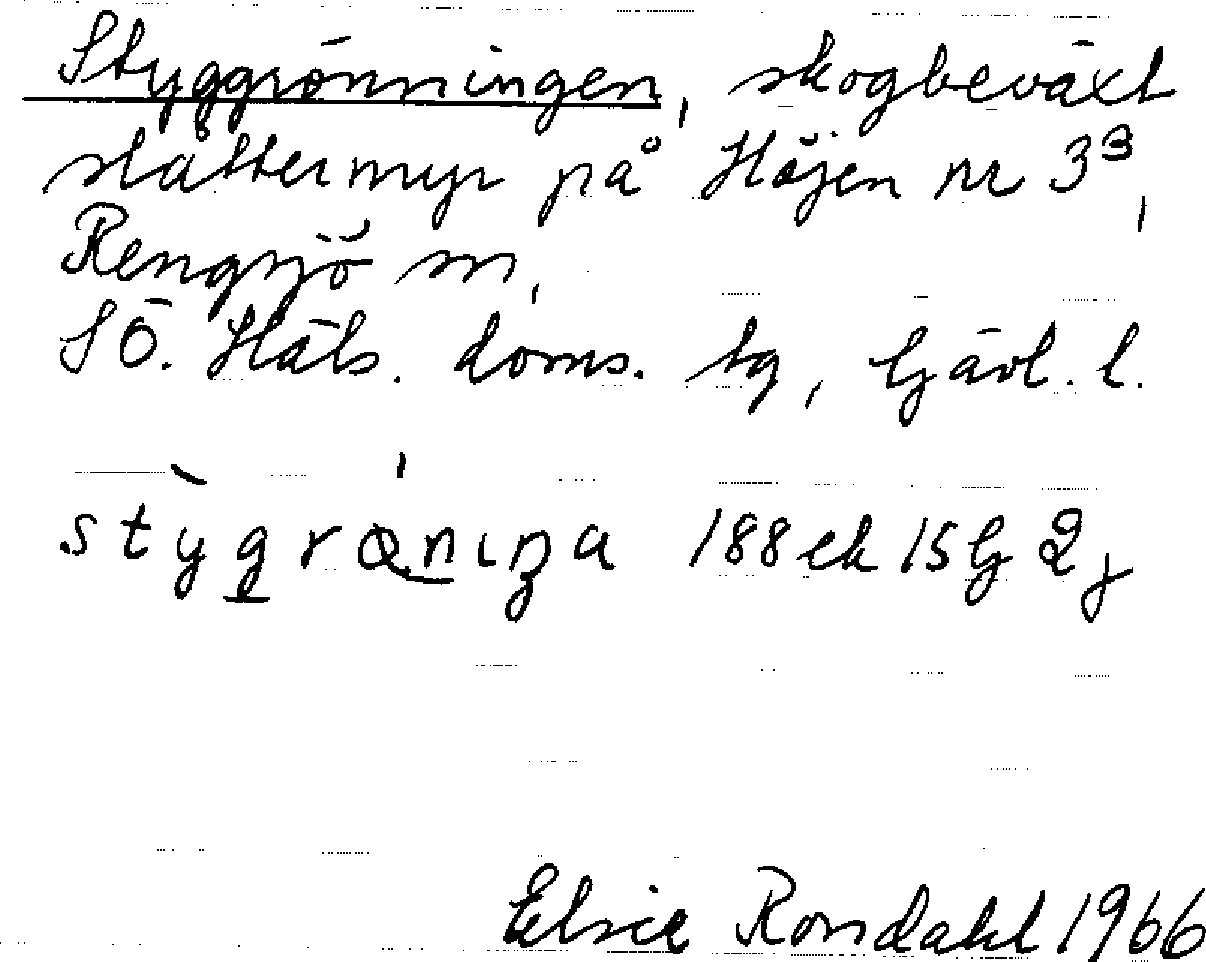 Styggrönningen, skogbeväxt
slåttermyr på Höjen nr 3³,
Rengsjö sn,
SÖ. Häls. doms. tg, Gävl. l.
188 ek 15G 2j
Elsie Rondahl 1966